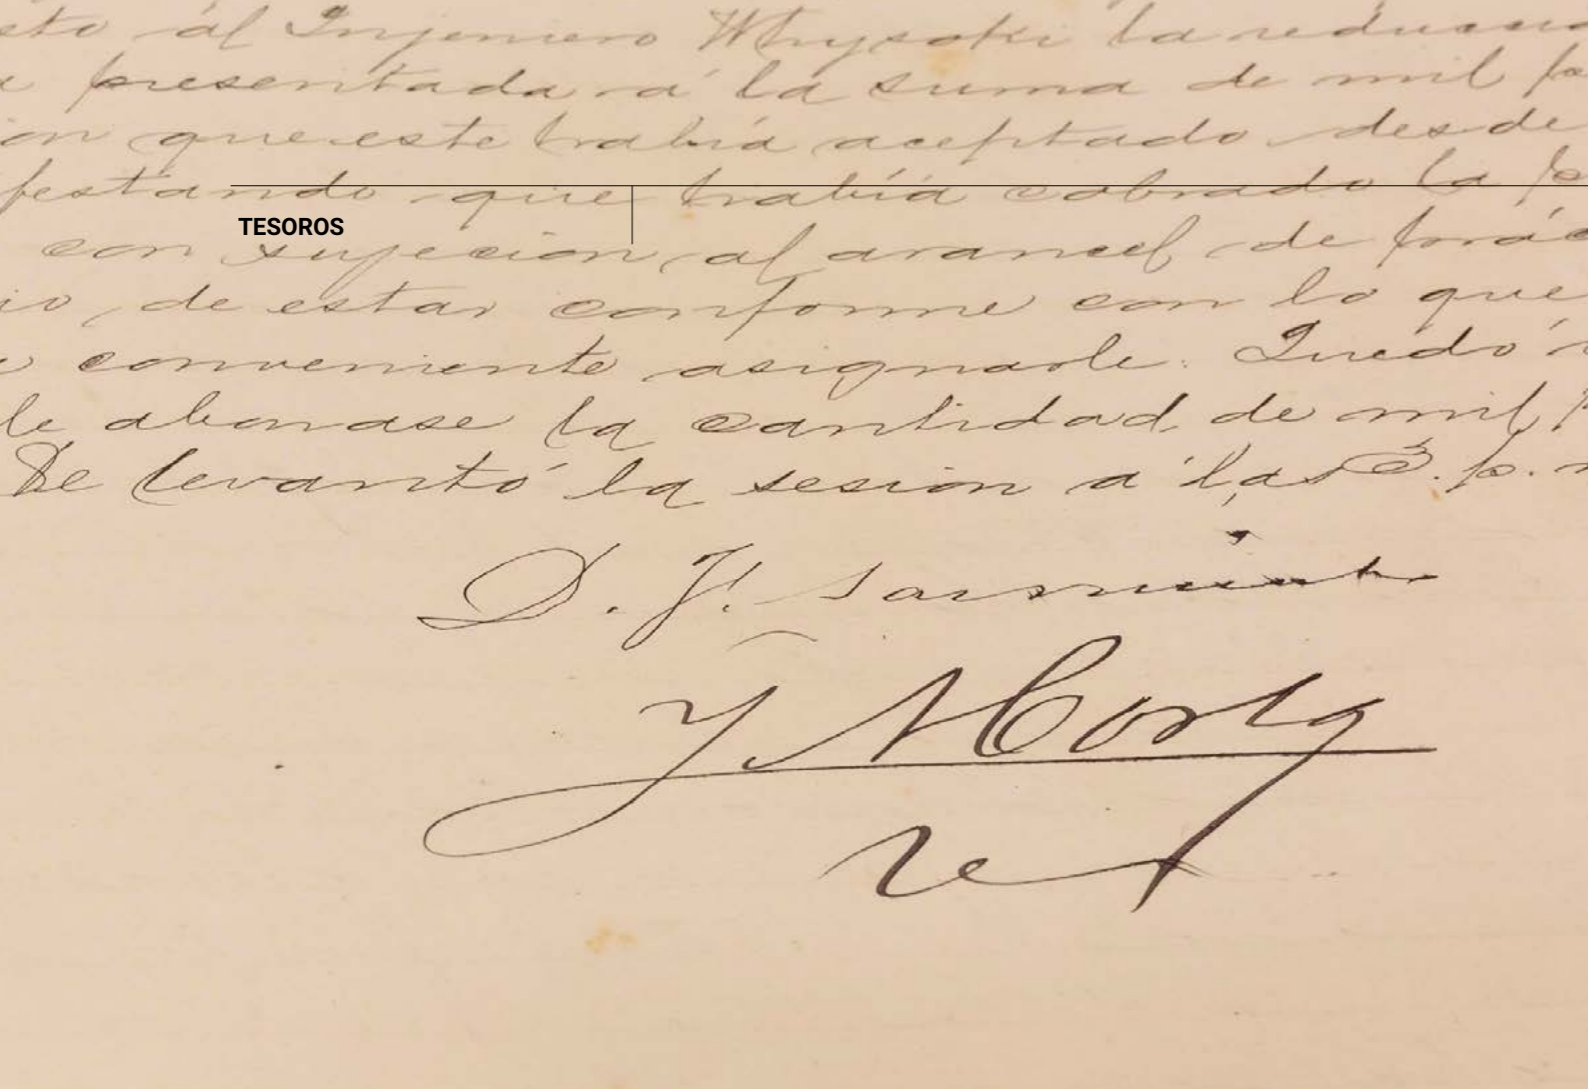 al Ingeniero Whysoki la
presentada á la suma de mil
que este habia aceptado desde
festando que habia cobrado la
TESOROS
con sujecion al arancel de
de estar conforme con lo que
conveniente asignarle. Quedó
le abonase la cantidad de mil
Se levantó la sesion á las 3. p.
D. F. Sarmiento